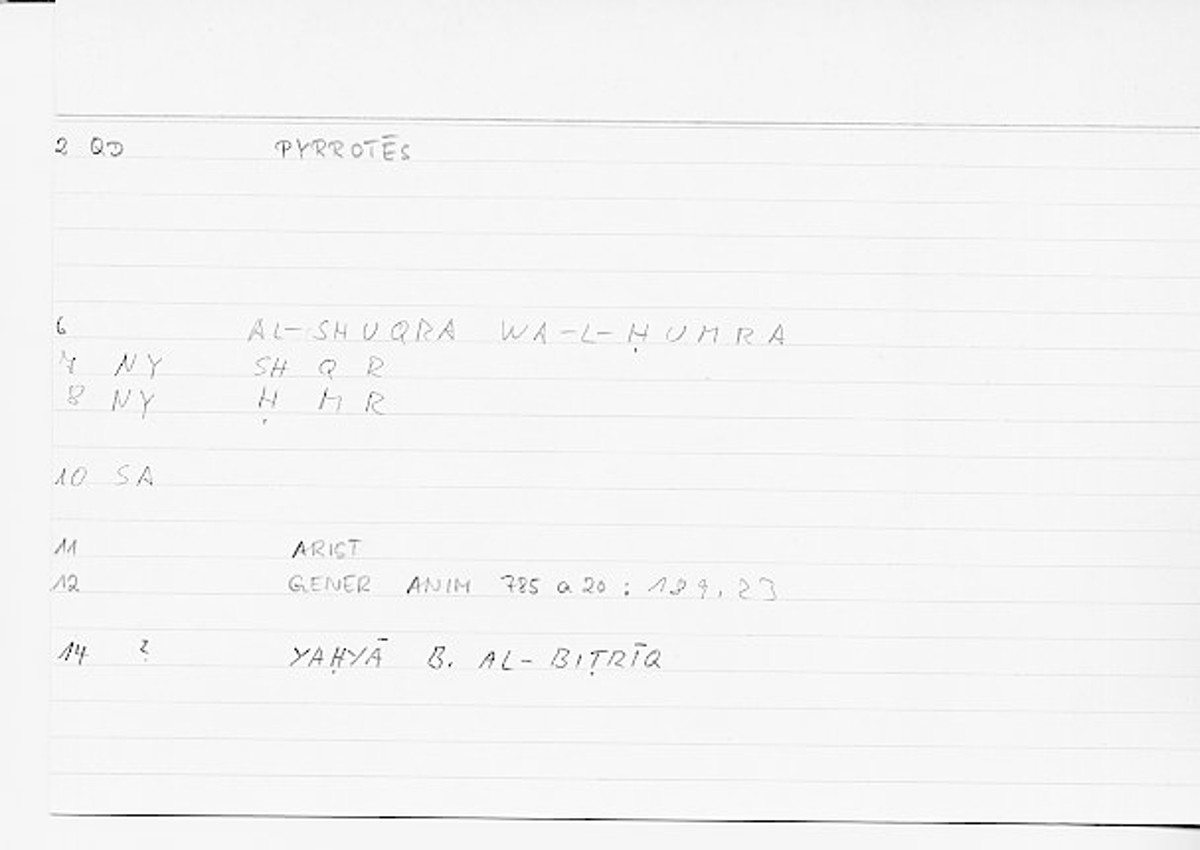 2 QD PYRROTĒS
6 AL-SHUQRA WA-L-ḤUMRA
7 NY SH Q R
8 NY Ḥ M R
10 SA
11 ARIST
12 GENER ANIM 785 a 20 : 189, 23
14 ? YAḤYĀ B. AL-BIṬRĪQ